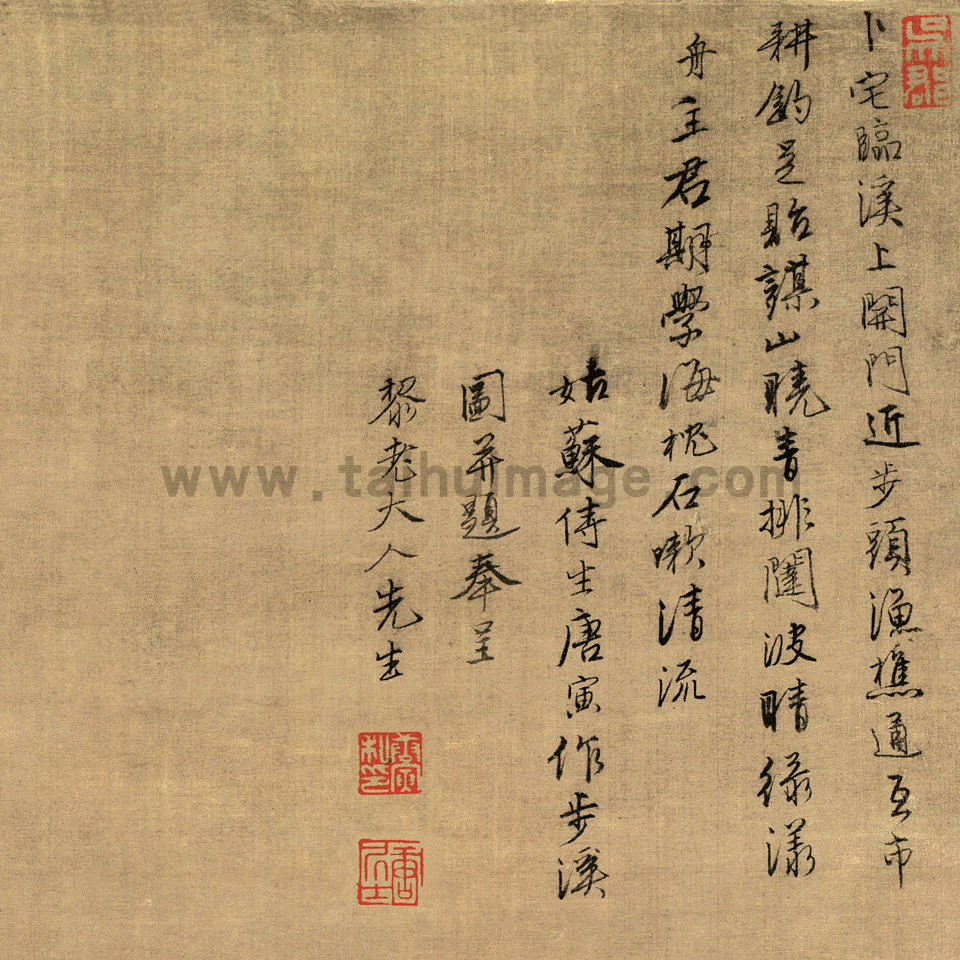 卜宅臨溪上開門近步頭漁樵通互市
耕釣足貽謀山曉青排闥波晴綠漾
舟主君期學海枕石嗽清流
姑蘇侍生唐寅作步溪
圖并題奉呈
黎老大人先生
唐寅私印
唐居士
www.taihuimage.com